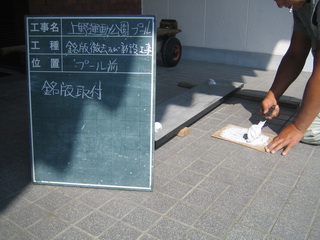 工事名 上野運動公園プール
工種 銘版撤去及び新設工事
位置 プール前
銘版取付